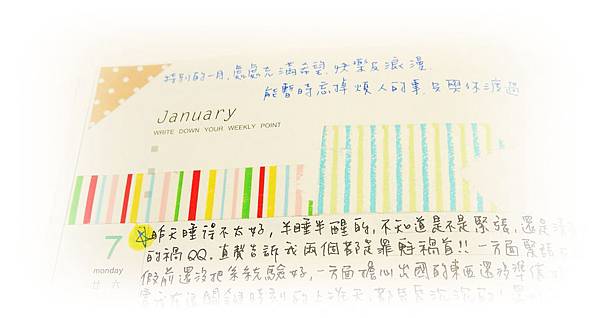 特別的一月,處處充滿希望,快樂及浪漫.
能暫時忘掉煩人的事,只要休渡過
January
WRITE DOWN YOUR WEEKLY POINT
7
monday
廿六
昨天睡得不太好,半睡半醒的,不知道是不是緊張,還是
的禍QQ.直覺告訴我兩個都是罪魁禍首!!一方面緊張
假前還沒把系統驗好,一方面擔心出國的東西還沒準備